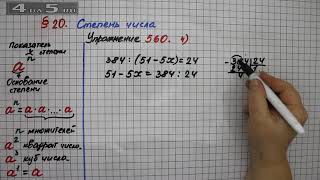 4 ДА 5.RU
§ 20. Степень числа
Упражнение 560. ч)
Показатель
степени
a n
Основание
степени
a n = a · a · ... · a
n множителей
a 2 квадрат числа
a 3 куб числа
a 1 = a
384 : (51 - 5x) = 24
51 - 5x = 384 : 24
- 384 | 24
24